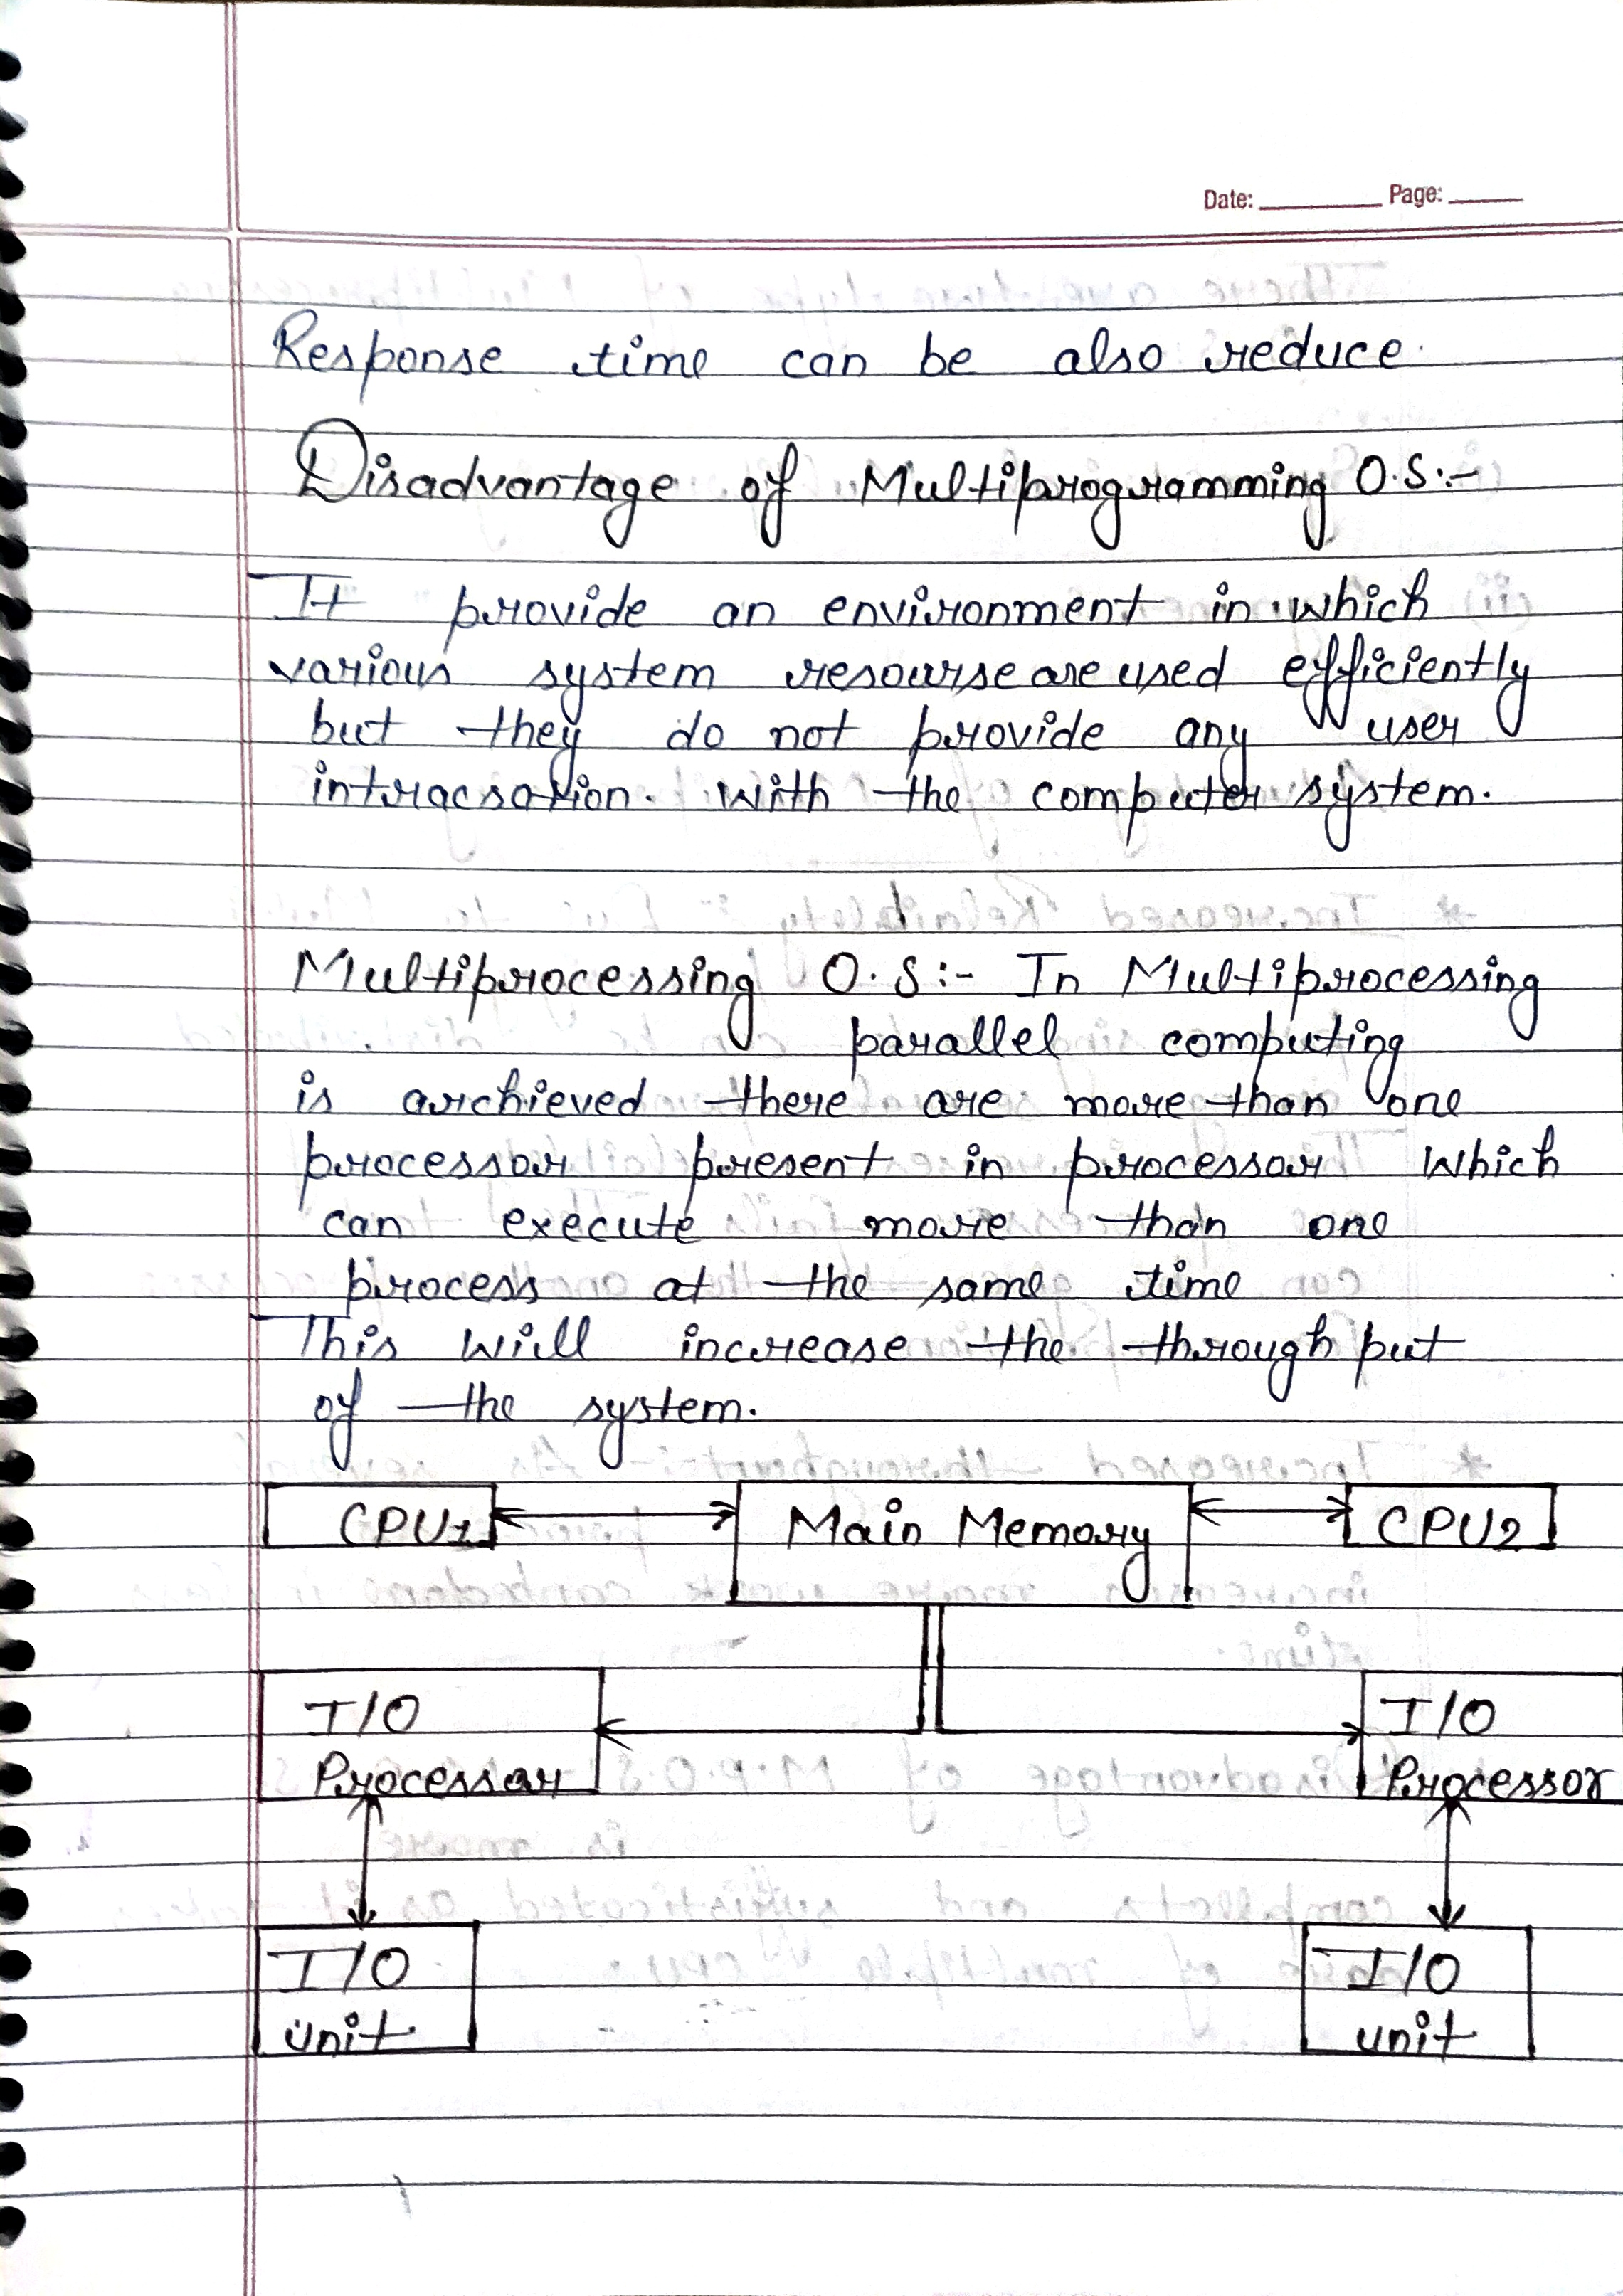 Date: Page:
Response time can be also reduce.
Disadvantage of Multiprogramming O.S:-
It provide an environment in which
various system resourse are used efficiently
but they do not provide any user
intracsation. with the computer system.
Multiprocessing O.S:- In Multiprocessing
parallel computing
is archieved there are more than one
processor present in processor which
can execute more than one
process at the same time
This will increase the through put
of the system.
CPU1 Main Memory CPU2
I/O I/O
Processor Processor
I/O I/O
unit unit